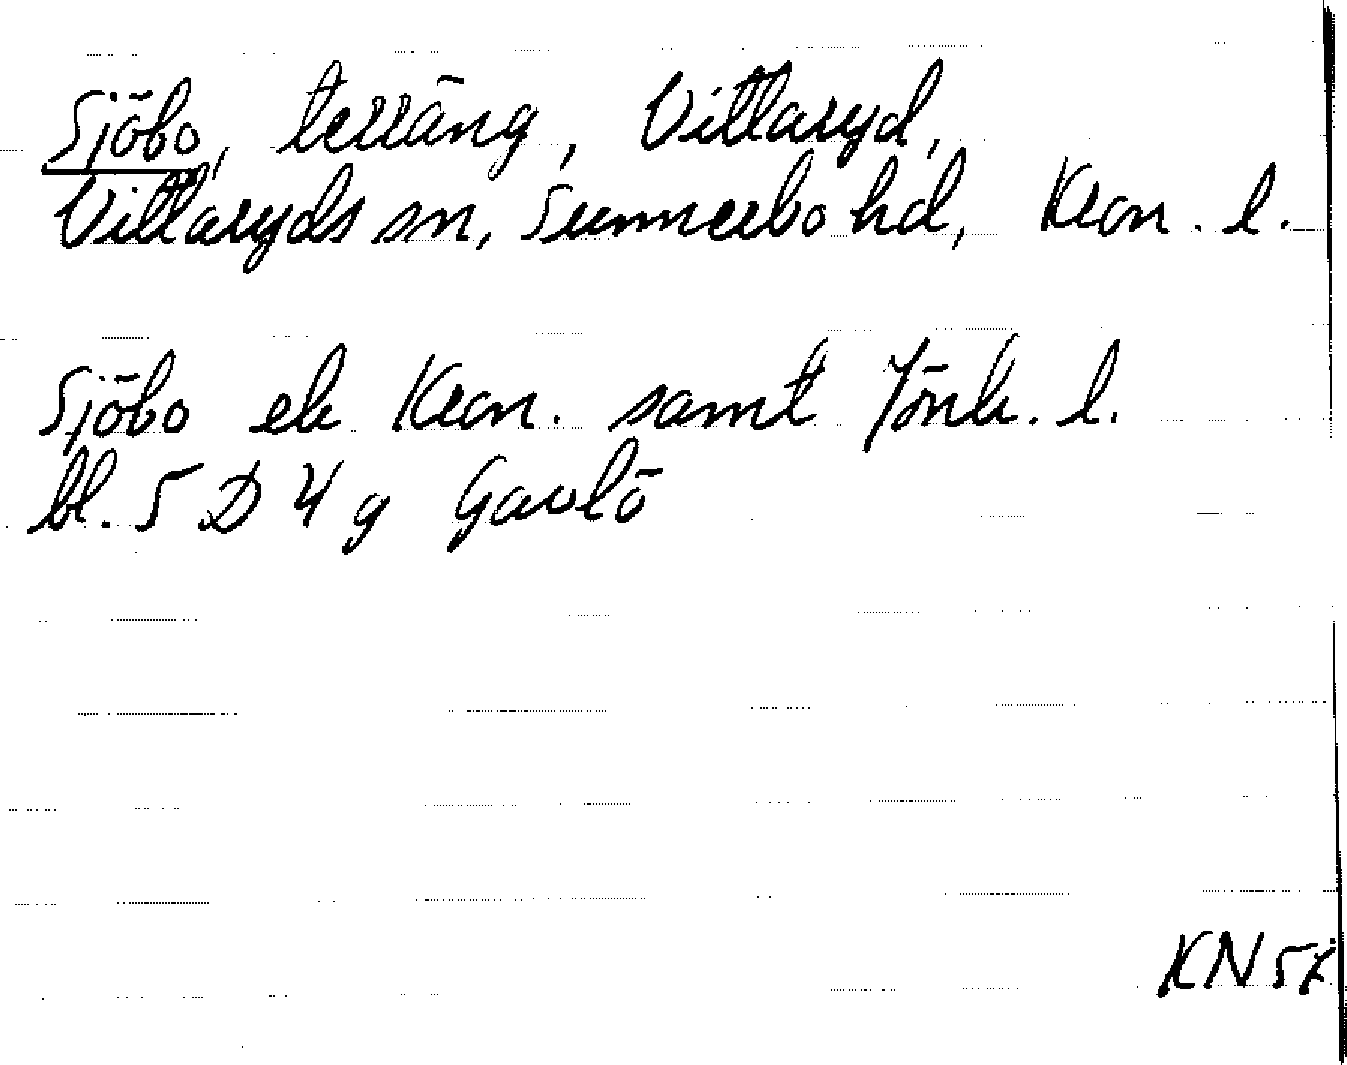 Sjöbo, terräng, Vittaryd,
Vittaryds sn, Sunnerbo hd, Kron. l.
Sjöbo ek Kron. samt Jönk. l.
bl. 5 D 4 g Gavlö
KN